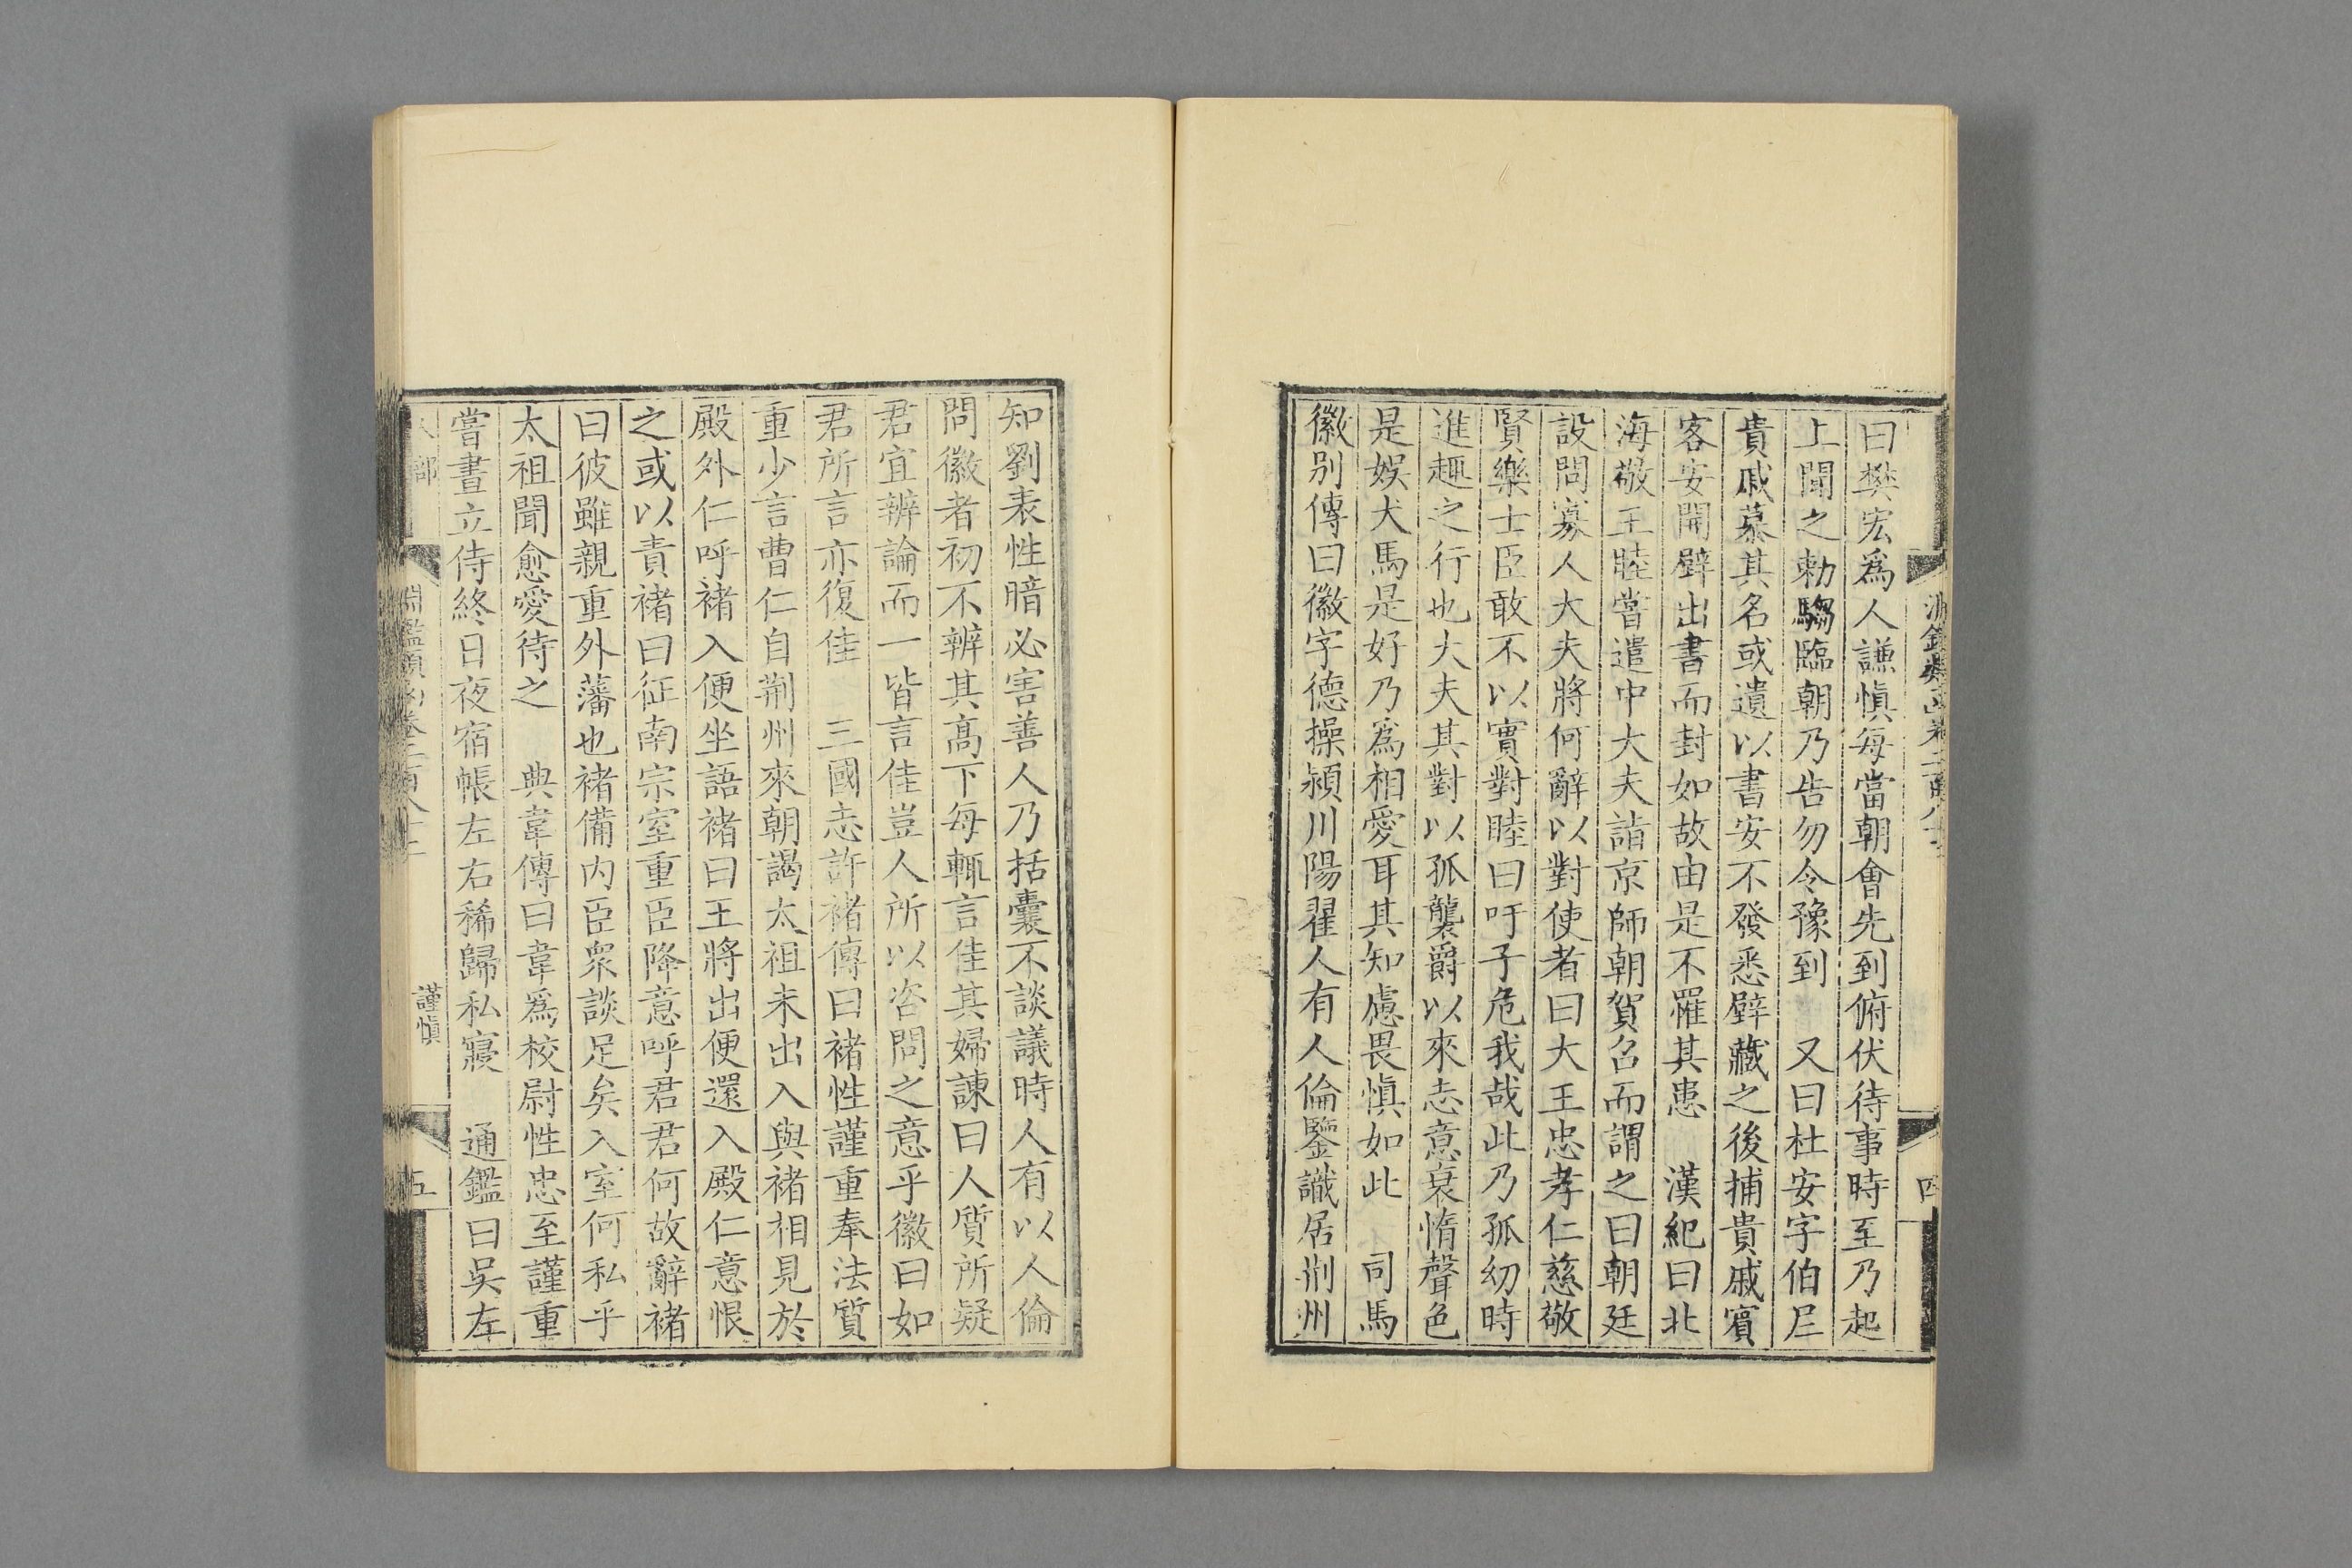 曰樊宏爲人謙愼每當朝會先到俯伏待事時至乃起
上聞之勅騶臨朝乃告勿令豫到　又曰杜安字伯𡰱
貴戚慕其名或遺以書安不發悉壁藏之後捕貴戚賓
客安開壁出書而封如故由是不罹其患　漢紀曰北
海敬王睦嘗遣中大夫詣京師朝賀召而謂之曰朝廷
設問寡人大夫將何辭以對使者曰大王忠孝仁慈敬
賢樂士臣敢不以實對睦曰吁子危我哉此乃孤幼時
進趣之行也大夫其對以孤襲爵以來志意衰惰聲色
是娛犬馬是好乃爲相愛耳其知慮畏愼如此　司馬
徽别傳曰徽字德操潁川陽翟人有人倫鑒識居荆州
知劉表性暗必害善人乃括囊不談議時人有以人倫
問徽者初不辨其高下每輒言佳其婦諫曰人質所疑
君宜辨論而一皆言佳豈人所以咨問之意乎徽曰如
君所言亦復佳　三國志許褚傳曰褚性謹重奉法質
重少言曹仁自荆州來朝謁太祖未出入與褚相見於
殿外仁呼褚入便坐語褚曰王將出便還入殿仁意恨
之或以責褚曰征南宗室重臣降意呼君君何故辭褚
曰彼雖親重外藩也褚備内臣衆談足矣入室何私乎
太祖聞愈愛待之　典韋傳曰韋爲校尉性忠至謹重
嘗晝立侍終日夜宿帳左右稀歸私寢　通鑑曰吳左
謹愼
五